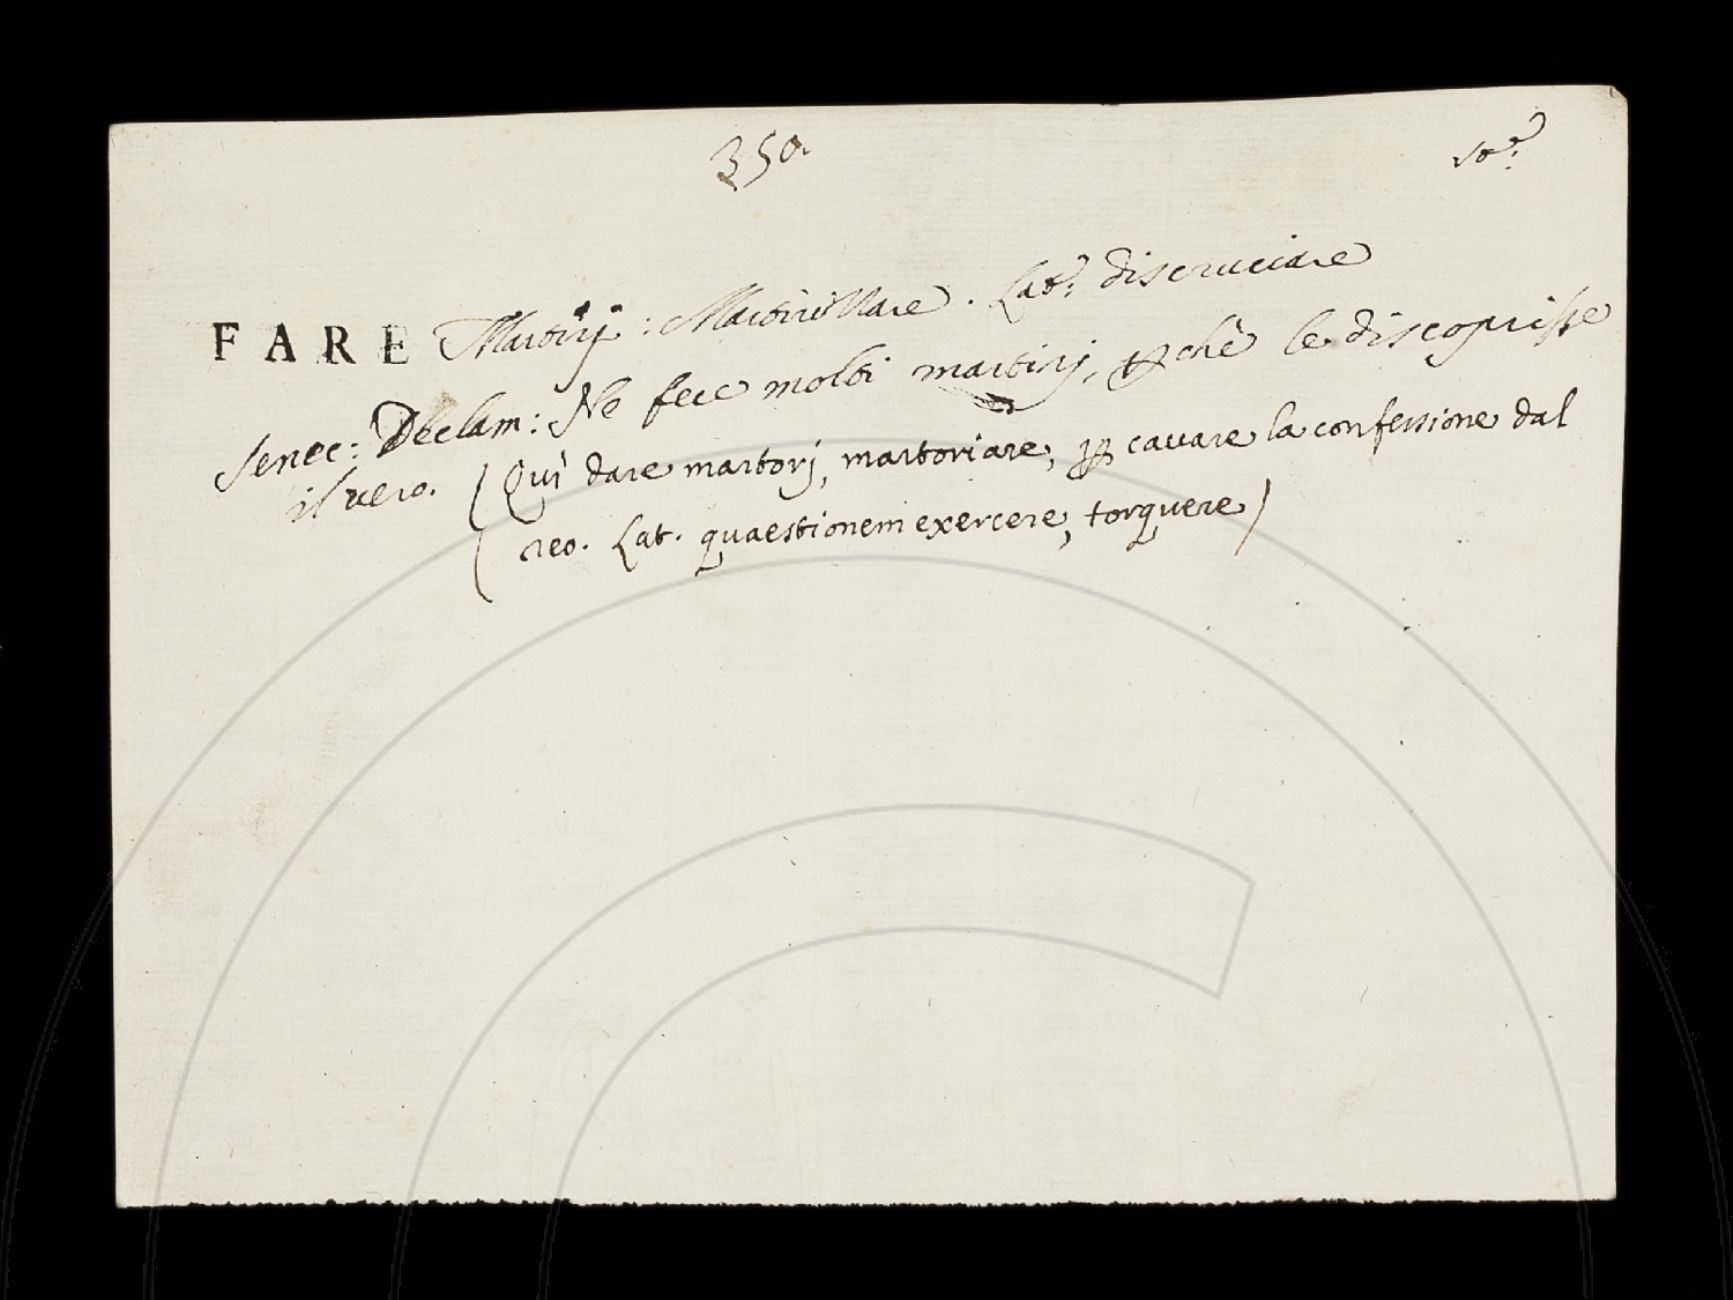 350.
FARE Martirj: Martirizzare. Lat: discruciare
Senec: Declam: Ne fece molti martirj, pchè le discoprisse
il vero. (Qui dare martorj, martoriare, p cavare la confessione dal
reo. Lat. quaestionem exercere, torquere)